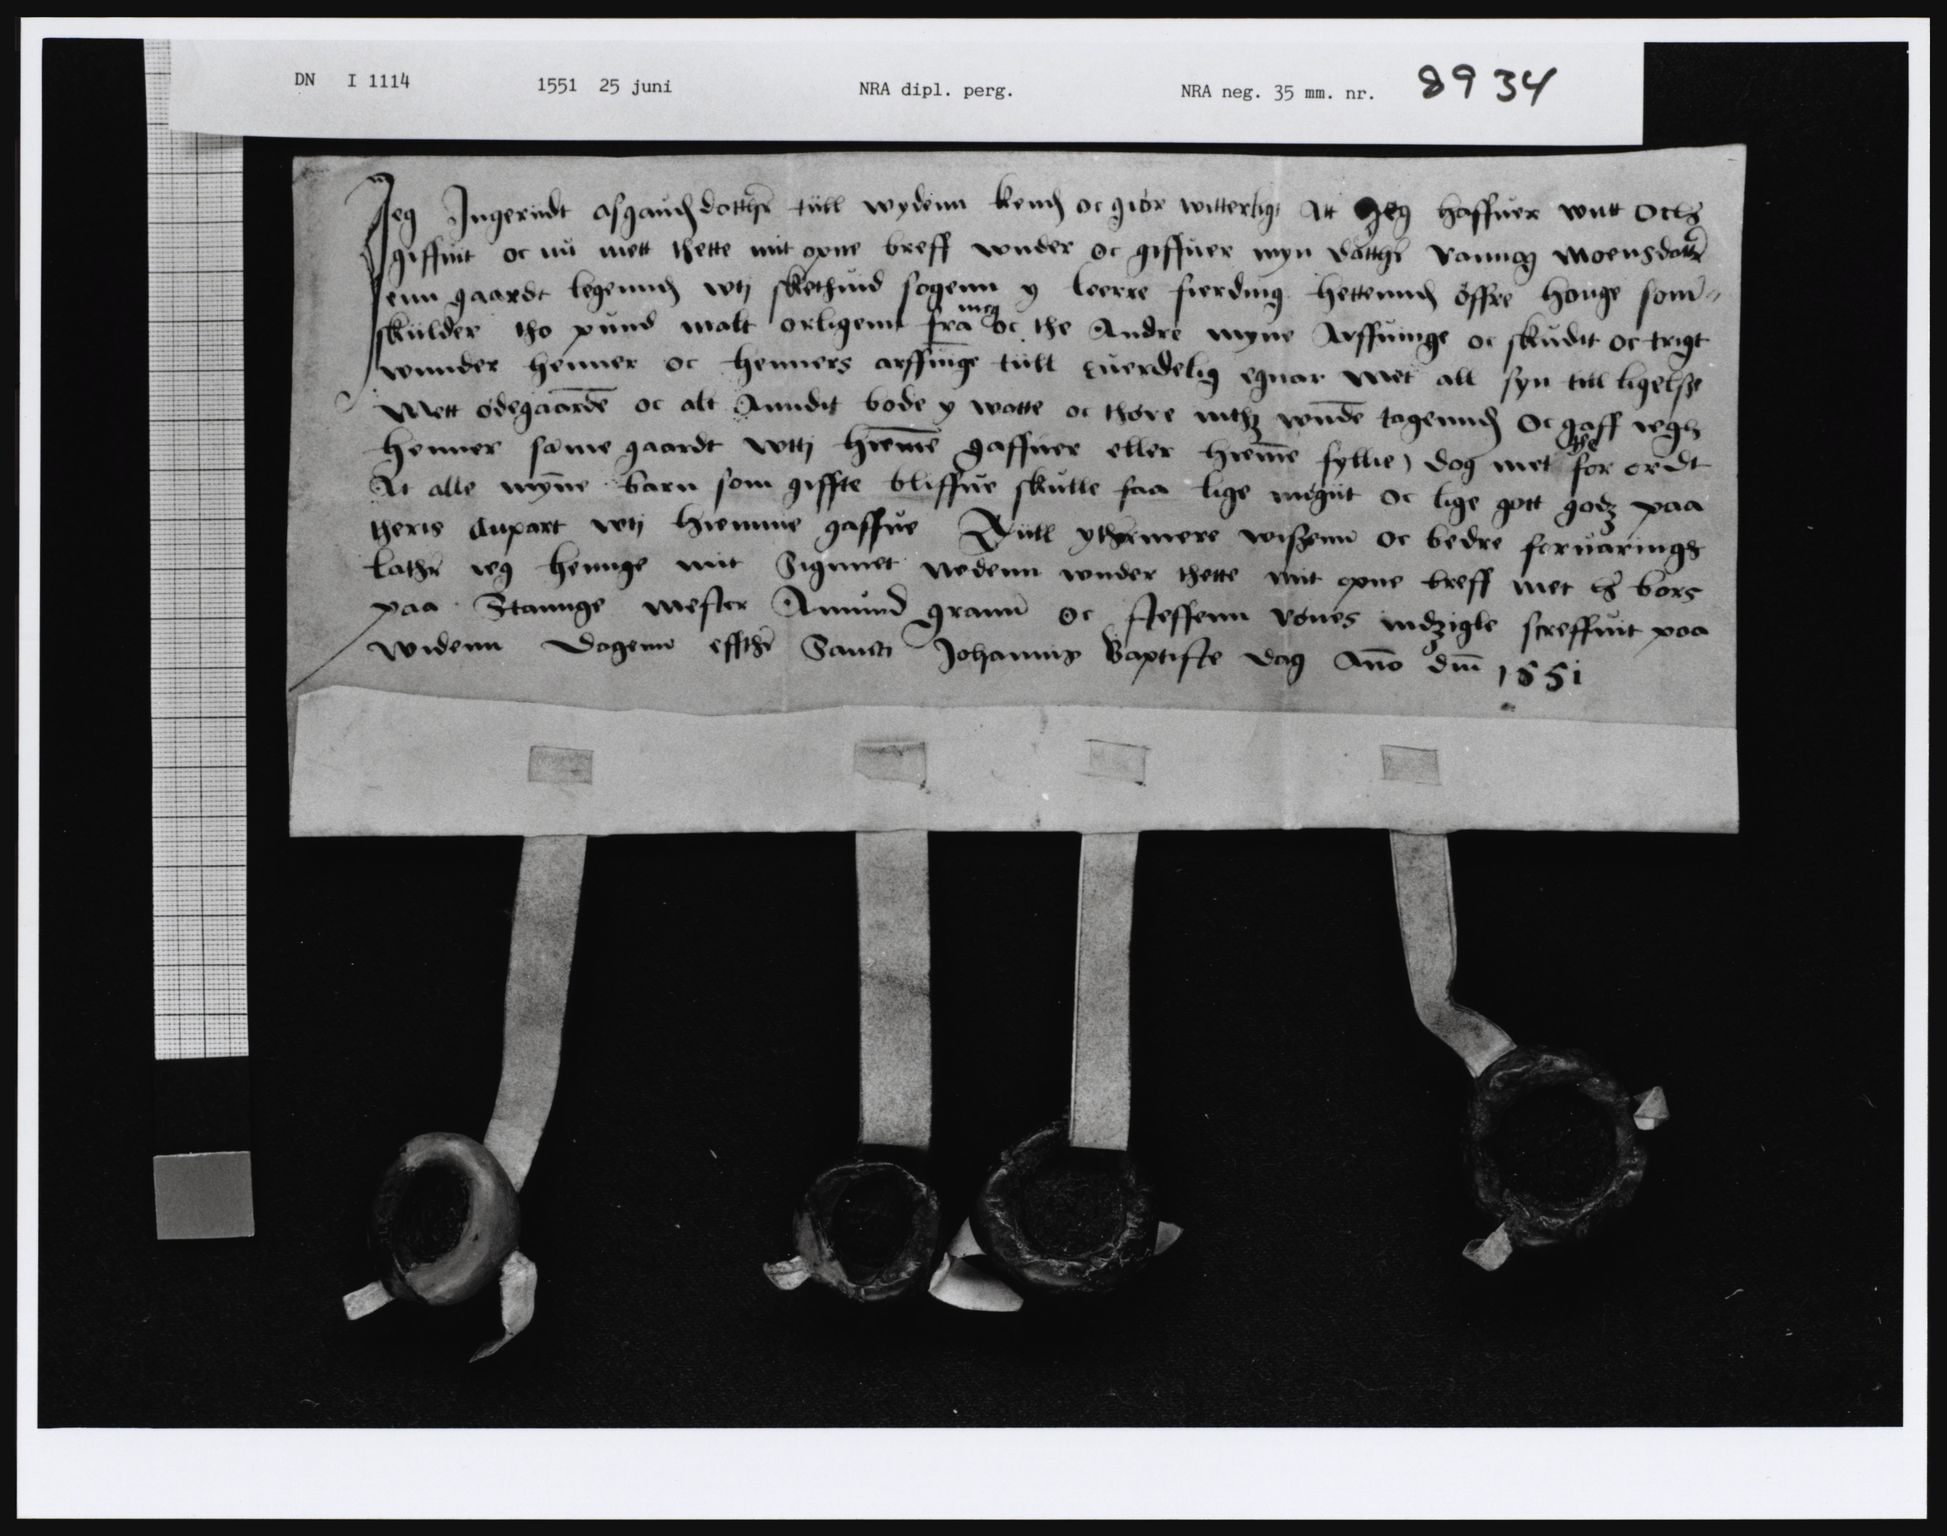 DN I 1114 1551 25 juni NRA dipl. perg. NRA neg. 35 mm. nr. 8934
Jeg Jngeridt asgaudzdotther tüll wydenn kend oc giør witterligt Att Jeg haffuer wntt och
giffuit oc nu mett thette mit opne breff wnder oc giffuer myn dotther Rannog Moensdotter
enn gaardt legennd wtj skethuid sogenn y leerre fierding hettennd øffre houge som
skülder tho pund malt orligenn fra meg oc the Andre myne Arffuinge oc skudit oc trigt
wnnder henner oc henners arffinge tüll euerdelig egnar Met all syn till ligelsse
Mett ødegaarde oc alt Anndit bode y wotte oc thøre inthz wnde tagennd Oc gaff iegh
henner same gaardt wttj hieme gaffuer eller hieme fyllie, dog met for ordt
At alle myne barn som giffte bliffue skulle faa lige migüt oc lige gott godz paa
theris Anpart wtj hiemme gaffue Tüll ythermere wissenn oc bedre foruaringh
lather ieg henge mit Signnet nedenn wnder thette mit opne breff met bors
paa Stannge mester Amund grann oc steffenn roues indzigle screffuit paa
widenn dagenn effther Sancti Johannis Baptiste dag Ano dm 1551